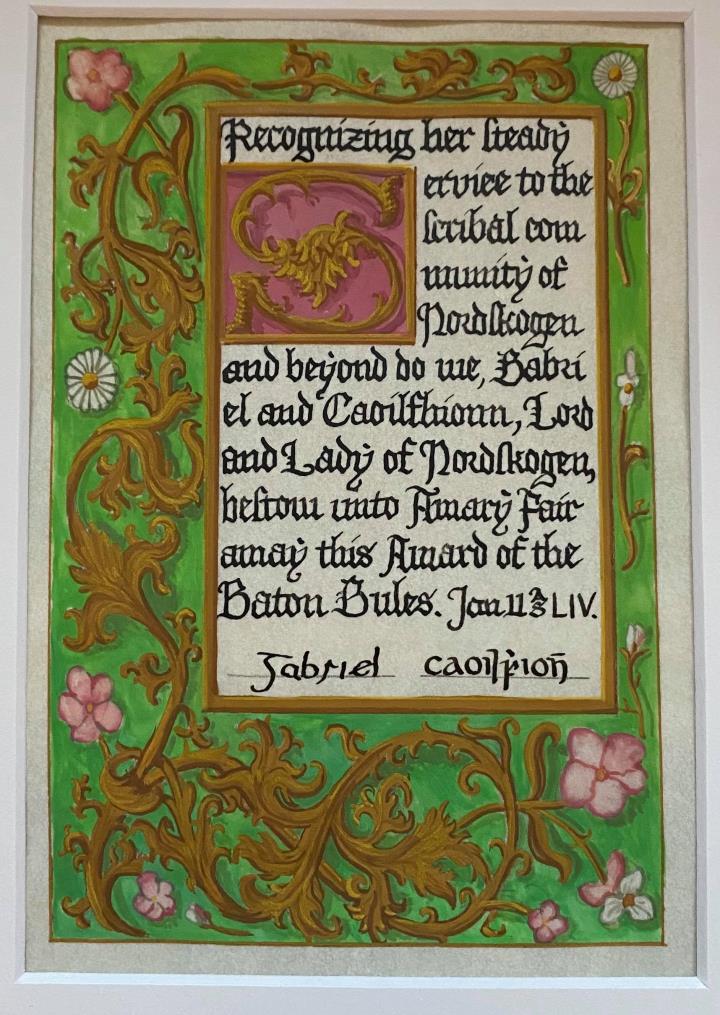 Recognizing her steady
Service to the
scribal com
munity of
Nordskogen
and beyond do we, Gabri
el and Caoilfhionn, Lord
and Lady of Nordskogen,
bestow unto Amary Fair
away this Award of the
Baton Gules. Jan 11 AS LIV.
Gabriel caoilḟion̄